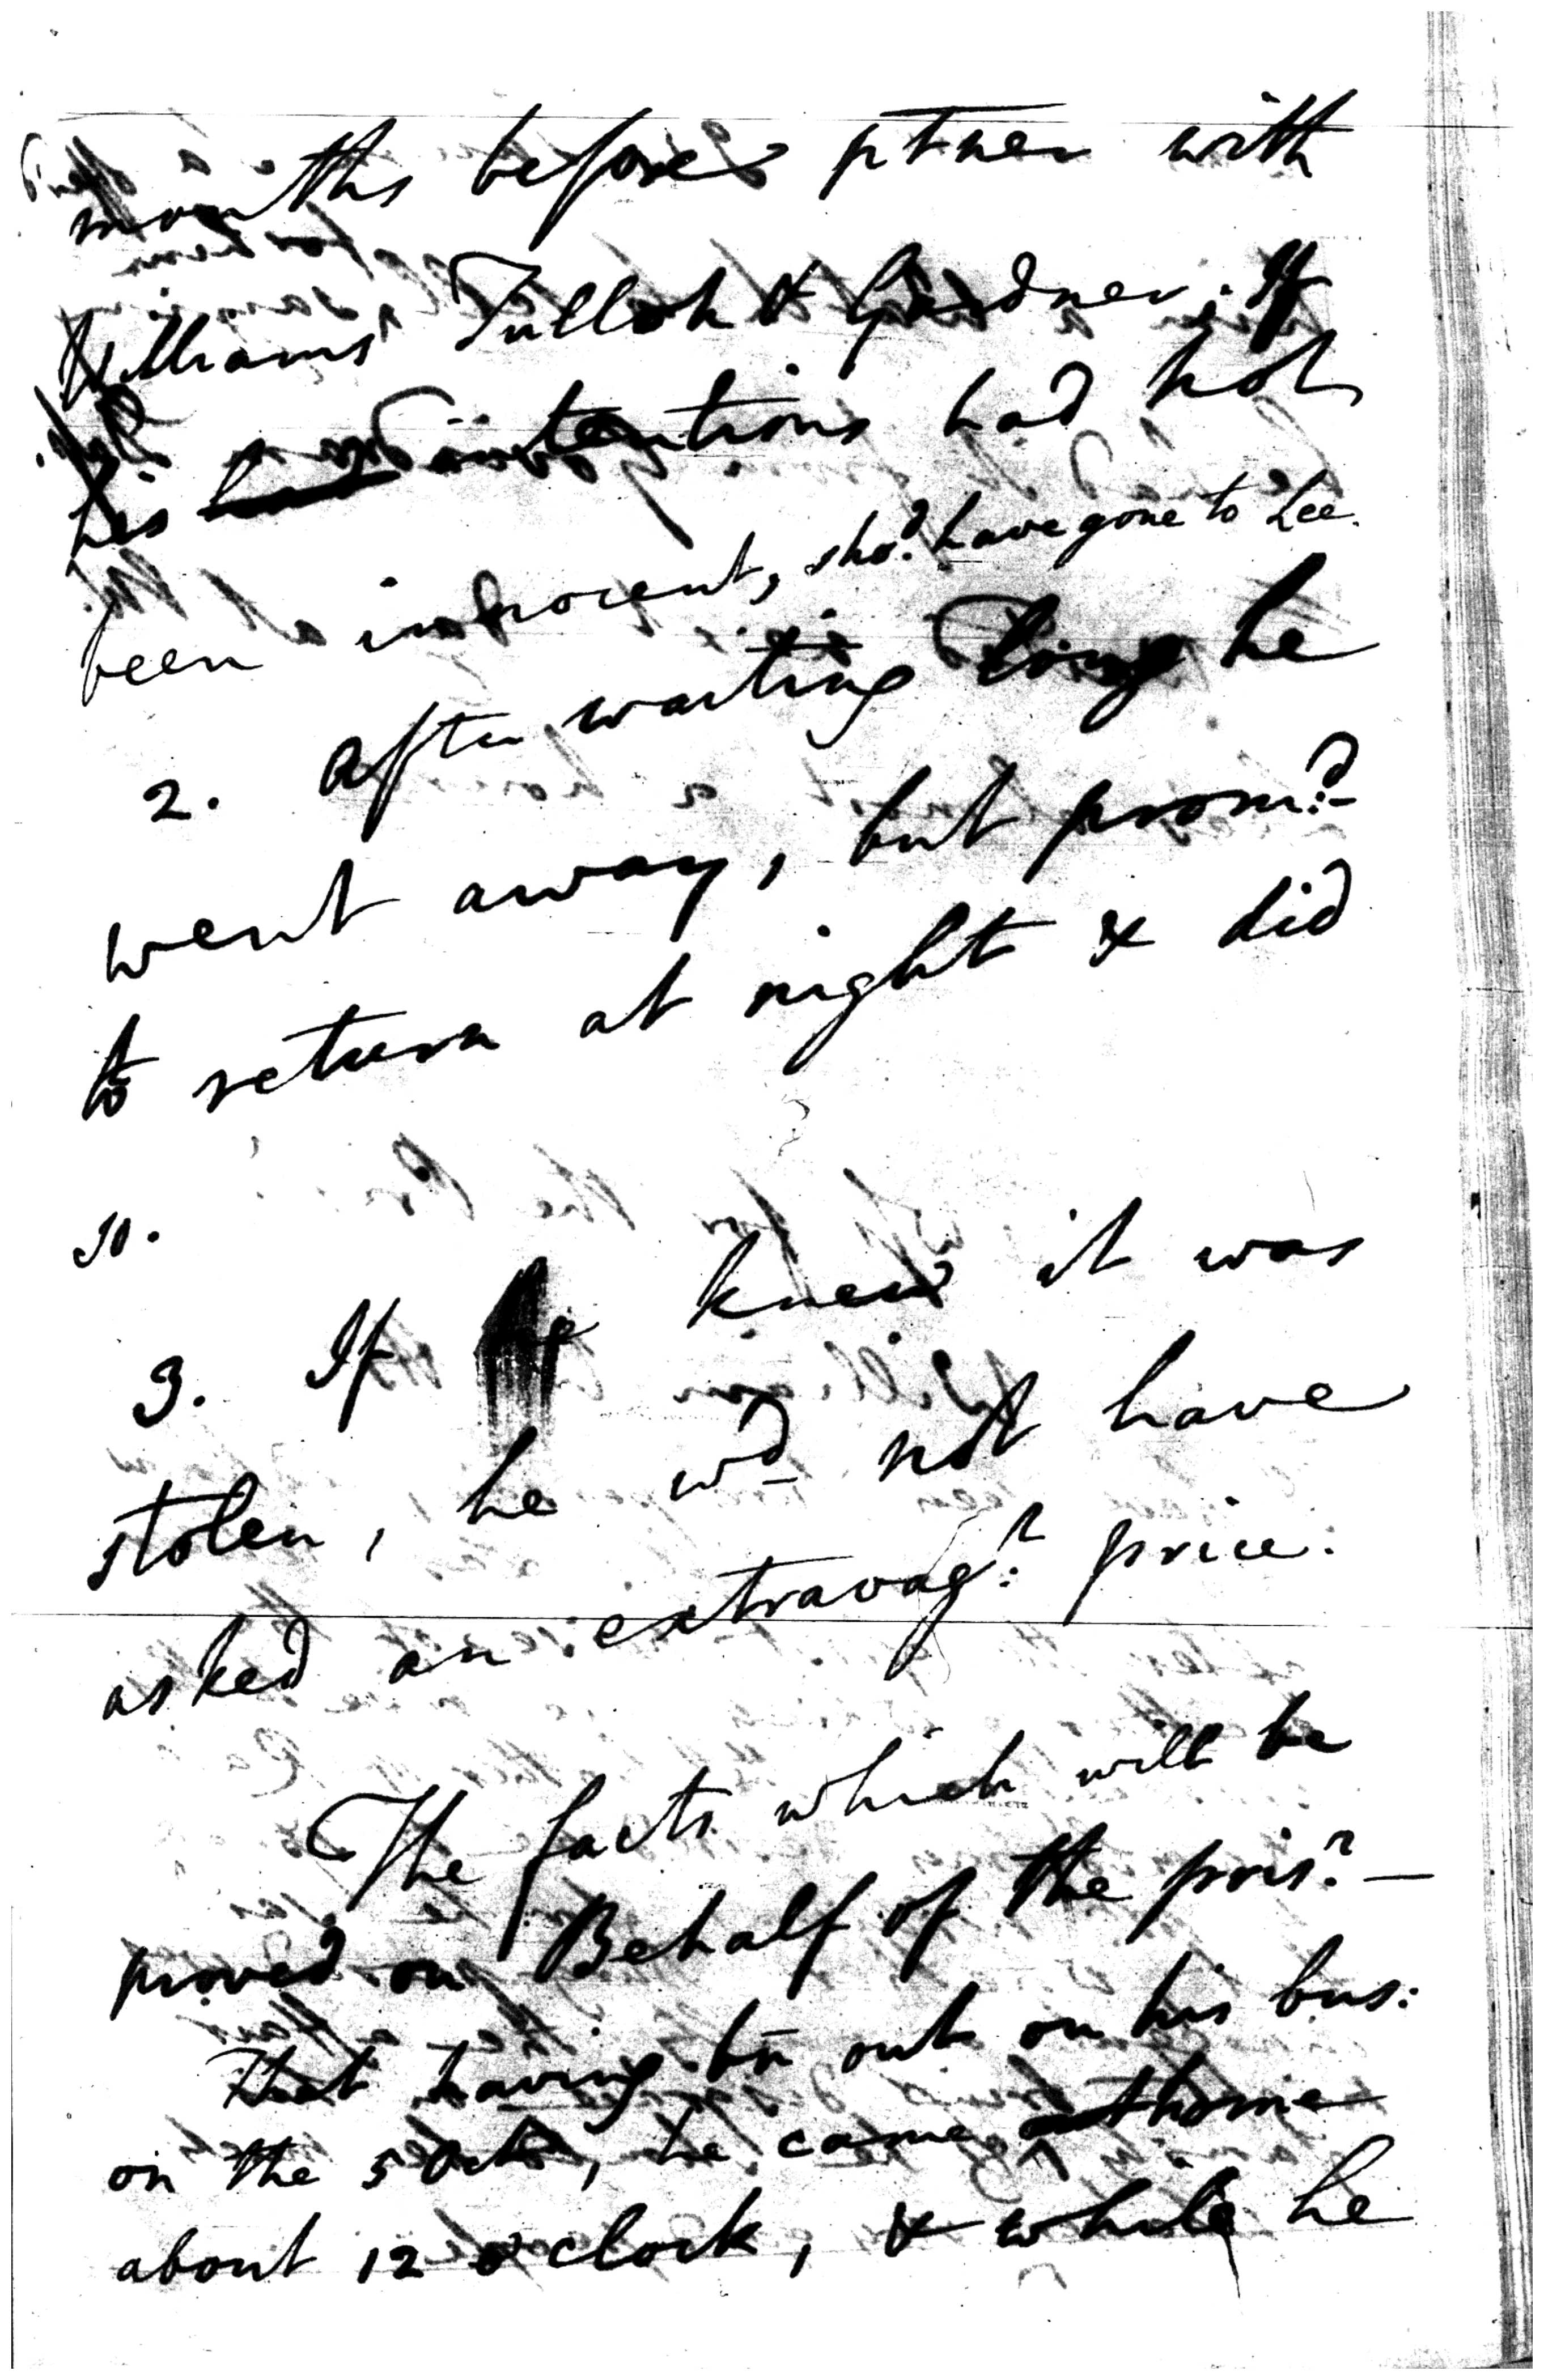 months before ptner with
Williams Tulloh & Gardner. If
his intentions had not
been innocent, shod. have gone to Lee.
2. After waiting long he
went away, but promd.
to return at night & did
so.
3. If he knew it was
stolen, he wd not have
asked an extravagt. price.
The facts which will be
proved on Behalf of the prisr. —
That having bn out on his bus:
on the 5 Octr, he came home
about 12 o'clock, & while he